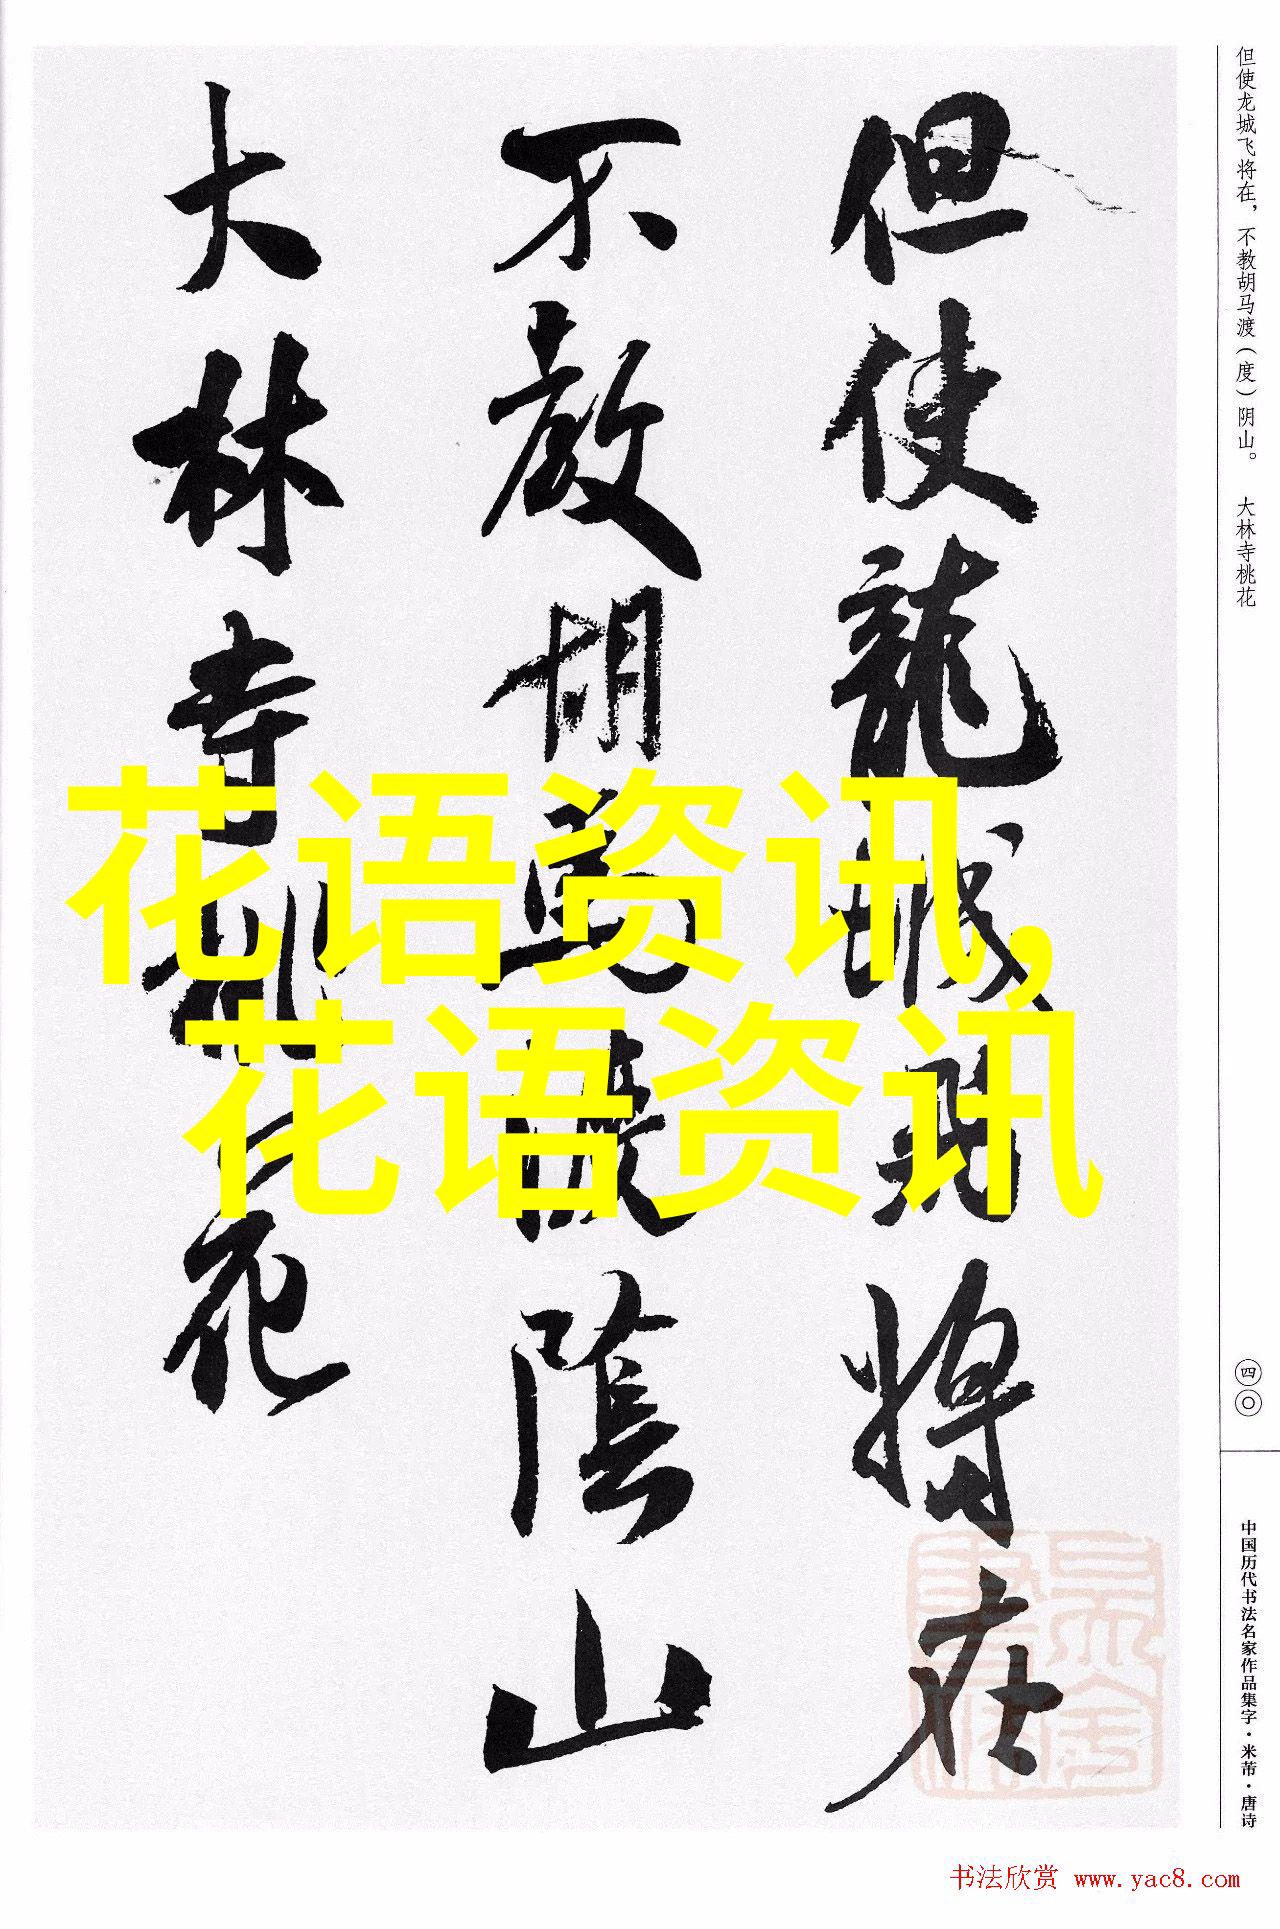 但使龙城飞将在，不教胡马渡（度）阴山。 大林寺桃花
但使龍城飛将在
不教胡馬渡陰山
大林寺桃花
花语资讯,
花语资讯
四〇
中国历代书法名家作品集字·米芾·唐诗
书法欣赏 www.yac8.com